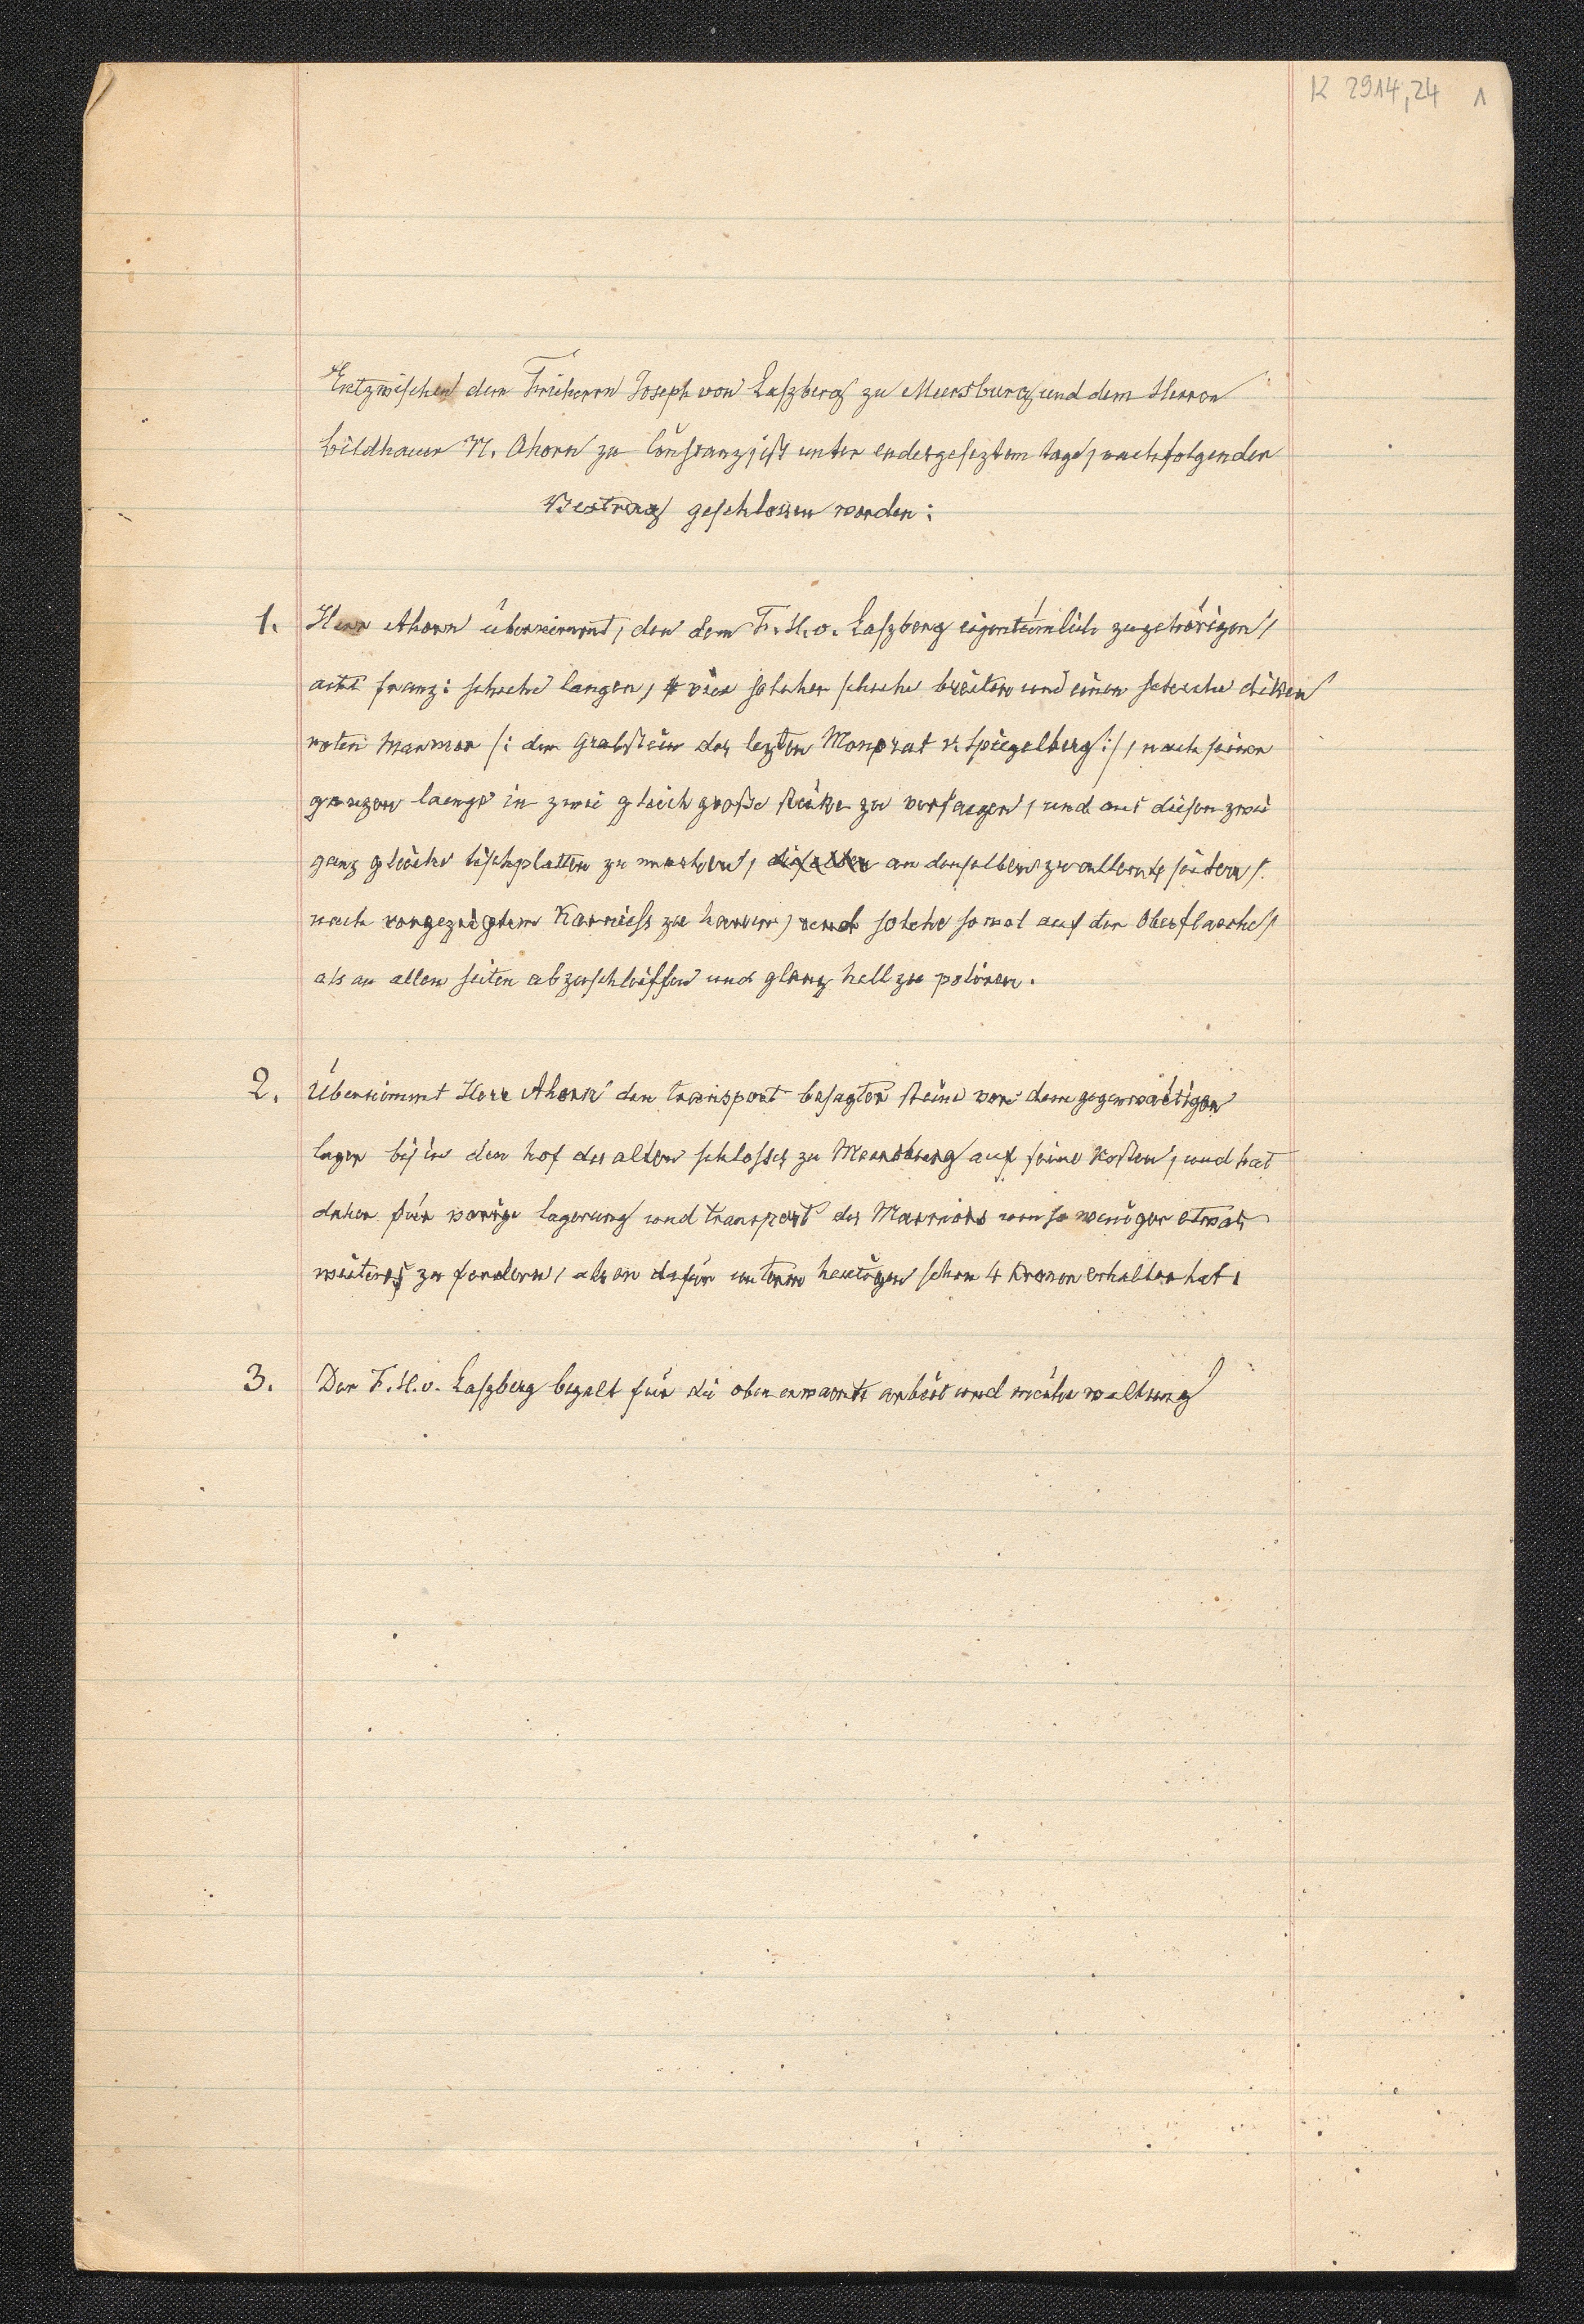 K 2914,24 1
Entzwischen dem Freiherrn Joseph von Laszberg zu Meersburg, und dem Herren
bildhauer N. Ahorn zu Constanz, ist unter endesgeseztem tage, nachfolgender
Vertrag geschlossen worden:
1. Herr Ahorn übernimmt, den dem F. H. v. Laszberg eigentümlich zugehörigen,
acht franz: schuhe langen, vier solcher schuhe breiten und einen schuhe diken
roten Marmor /: den Grabstein des lezten Monprat v. Spiegelberg :/, nach seiner
ganzen laenge in zwei gleich große stüke zu versaegen, und aus diesen zwei
ganz gleiche tischplatten zu machen, an denselben zu allen seiten,
nach vorgezeigtem Karniess zu hauen, und solche sowol auf der Oberflaeche,
als an allen seiten abzuschleiffen und glanz hell zu poliren.
2. Übernimmt Herr Ahorn den transport besagter steine von dem gegenwaertigen
lager bis in den hof des alten schlosses zu Meersburg auf seine Kosten, und hat
daher für vorige lagerung und transport des Marmors um so weniger etwas
weiteres zu fordern, als er dafür unterm heutigen schon 4 Kronen erhalten hat.
3. Der F. H. v. Laszberg bezalt für die oben erwaente arbeit und mühe waltung